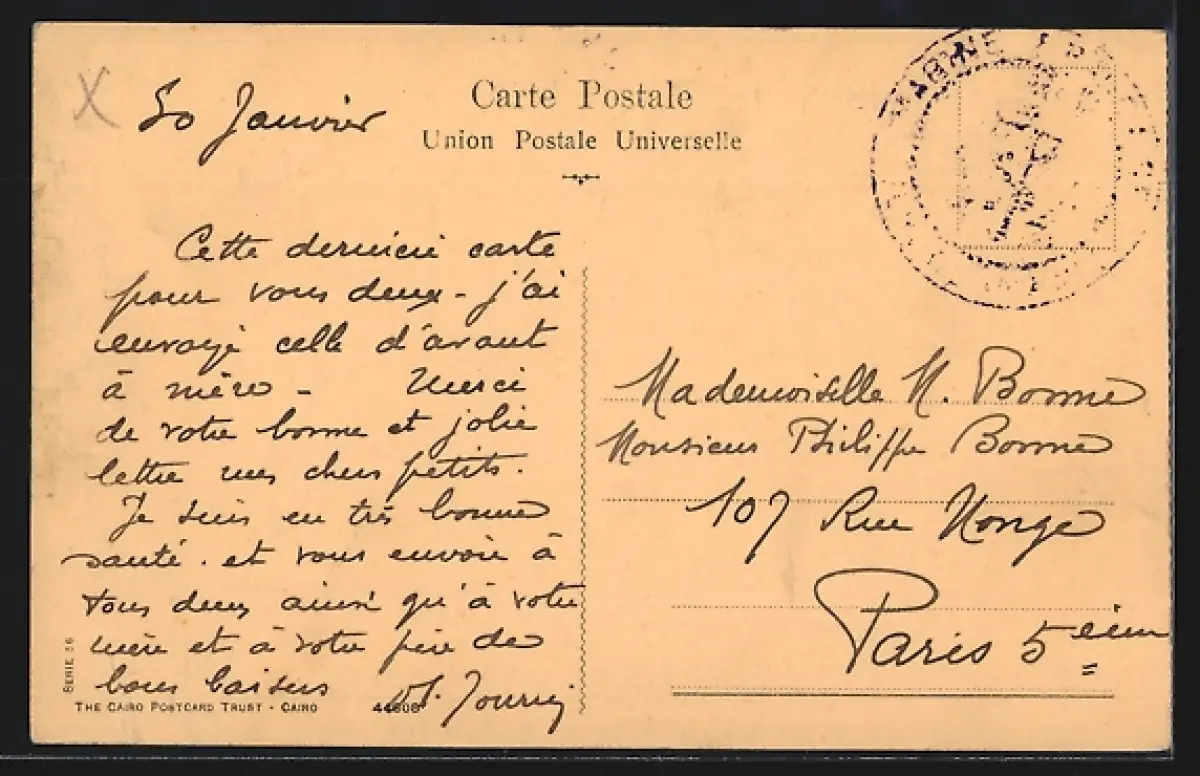 X
30 Janvier
Carte Postale
Union Postale Universelle
MARINE
Cette dernière carte
pour vous deux - j'ai
envoyé celle d'avant
à mère - Merci
de votre bonne et jolie
lettre mes chers petits.
Je suis en très bonne
santé. et vous envoie à
tous deux ainsi qu'à votre
mère et à votre père de
bons baisers
Mademoiselle M. Bonne
Monsieur Philippe Bonne
107 Rue Monge
Paris 5eim
SERIE 56
THE CAIRO POSTCARD TRUST - CAIRO